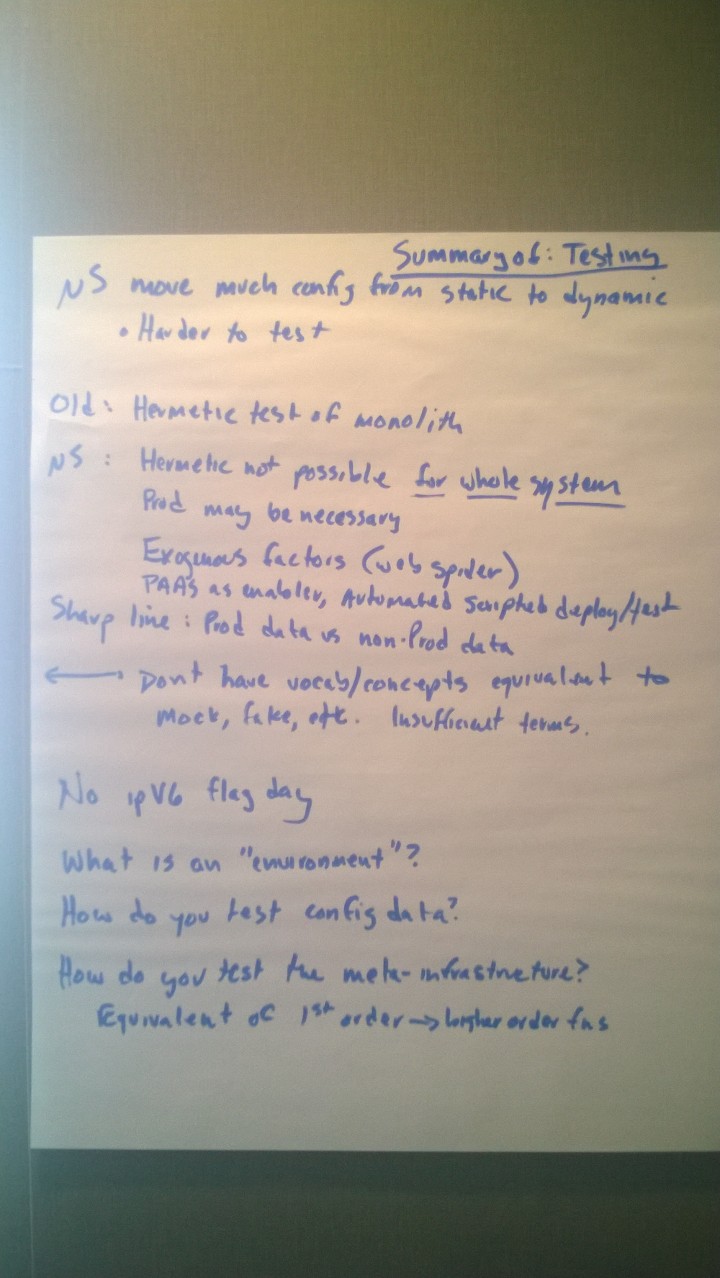 Summary of: Testing
µS move much config from static to dynamic
• Harder to test
Old: Hermetic test of monolith
µS: Hermetic not possible for whole system
Prod may be necessary
Exogenous factors (web spider)
PAAS as enabler, Automated scripted deploy/test
Sharp line: Prod data vs non-Prod data
⟷ Dont have vocab/concepts equivalent to
mock, fake, etc. Insufficient terms.
No ipV6 flag day
What is an "environment"?
How do you test config data?
How do you test the meta-infrastructure?
Equivalent of 1st order → higher order fns